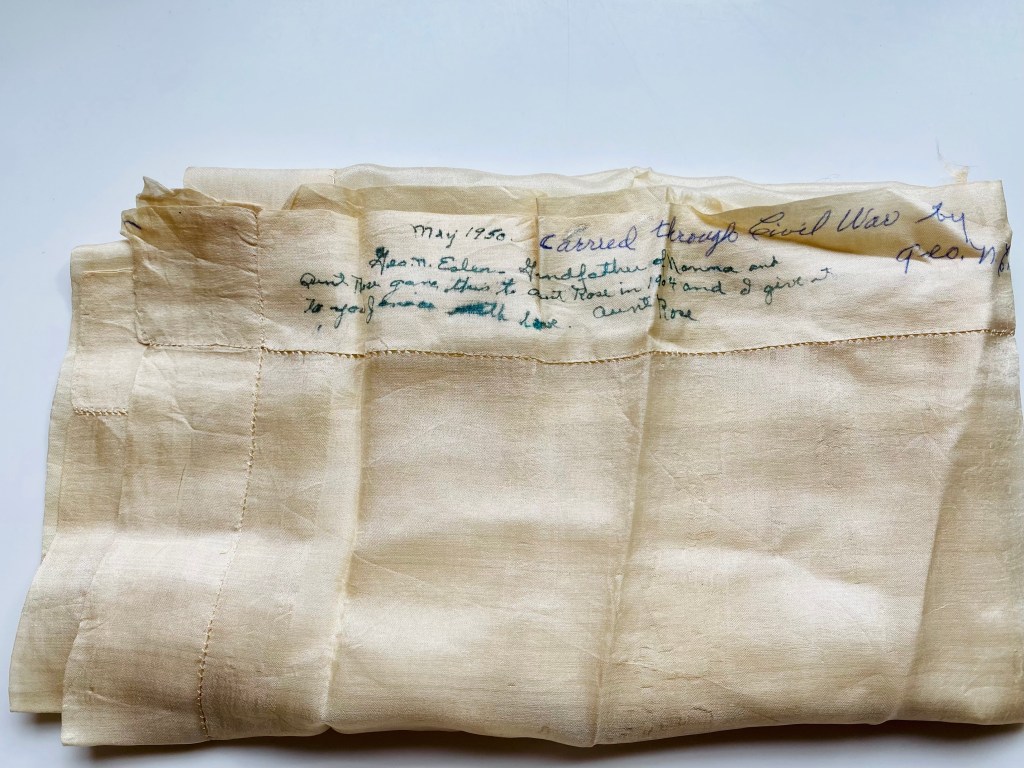 May 1950.
carried through Civil War by
Geo. N.
Geo. N. - Grandfather of Momma and
Aunt Rose gave this to Aunt Rose in 1904 and I give it
to you love. Aunt Rose